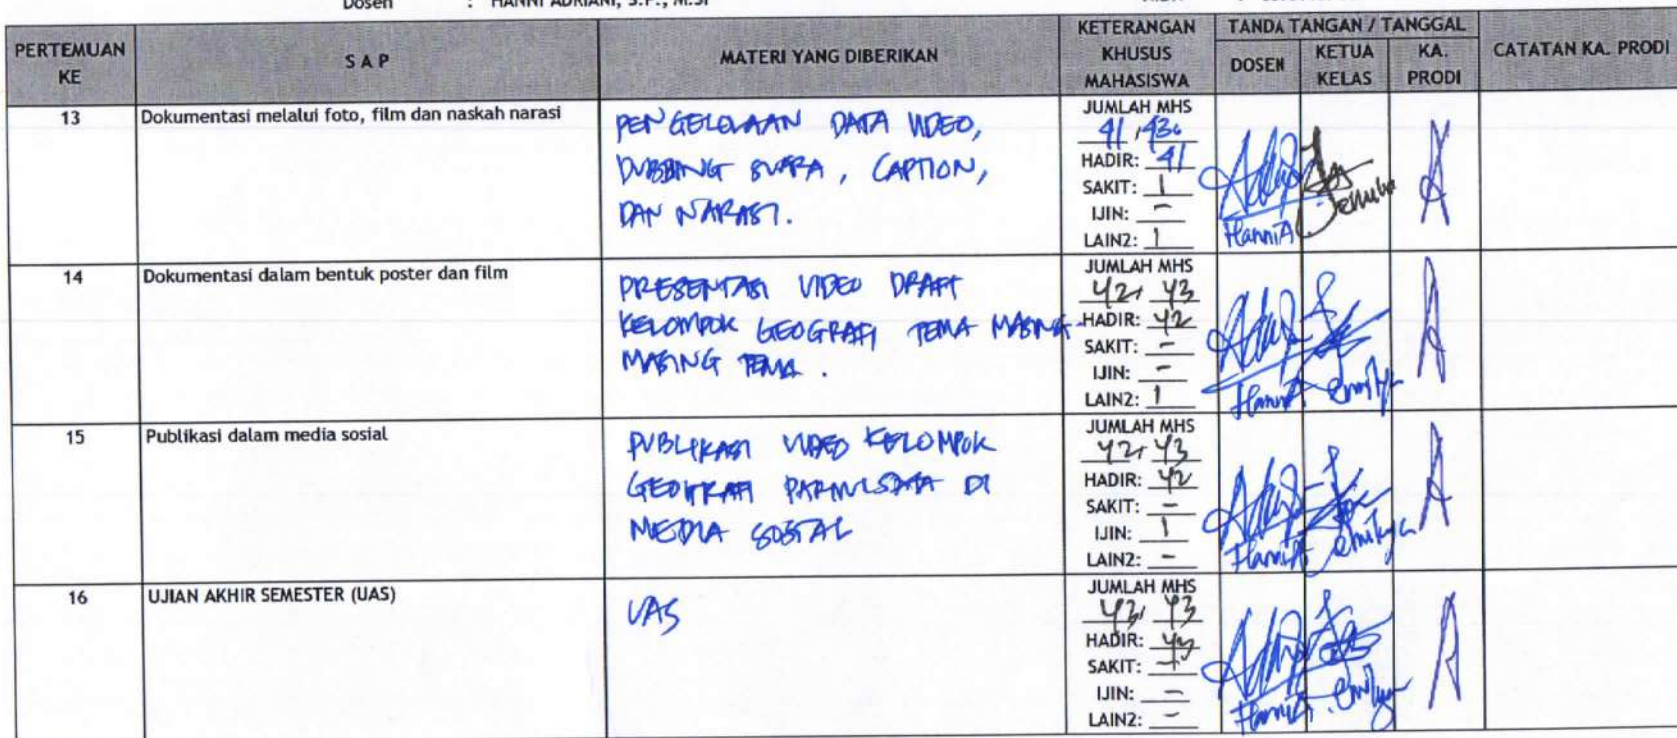 Dosen : HANNI ADRIANI, S.P., M.Si
PERTEMUAN KE
S A P
MATERI YANG DIBERIKAN
KETERANGAN KHUSUS MAHASISWA
TANDA TANGAN / TANGGAL
DOSEN
KETUA KELAS
KA. PRODI
CATATAN KA. PRODI
13
Dokumentasi melalui foto, film dan naskah narasi
PENGELOLAAN DATA VIDEO,
DUBBING SUARA, CAPTION,
DAN NARASI.
JUMLAH MHS
41 / 43
HADIR: 41
SAKIT: 1
IJIN: -
LAIN2: 1
HanniA
14
Dokumentasi dalam bentuk poster dan film
PRESENTASI VIDEO DRAFT
KELOMPOK GEOGRAFI TEMA MASING-
MASING TEMA.
JUMLAH MHS
42, 43
HADIR: 42
SAKIT: -
IJIN: -
LAIN2: 1
HanniA.
15
Publikasi dalam media sosial
PUBLIKASI VIDEO KELOMPOK
GEOGRAFI PARIWISATA DI
MEDIA SOSIAL
JUMLAH MHS
42, 43
HADIR: 42
SAKIT: -
IJIN: 1
LAIN2: -
HanniA.
16
UJIAN AKHIR SEMESTER (UAS)
UAS
JUMLAH MHS
43, 43
HADIR: 43
SAKIT: -
IJIN: -
LAIN2: -
HanniA.